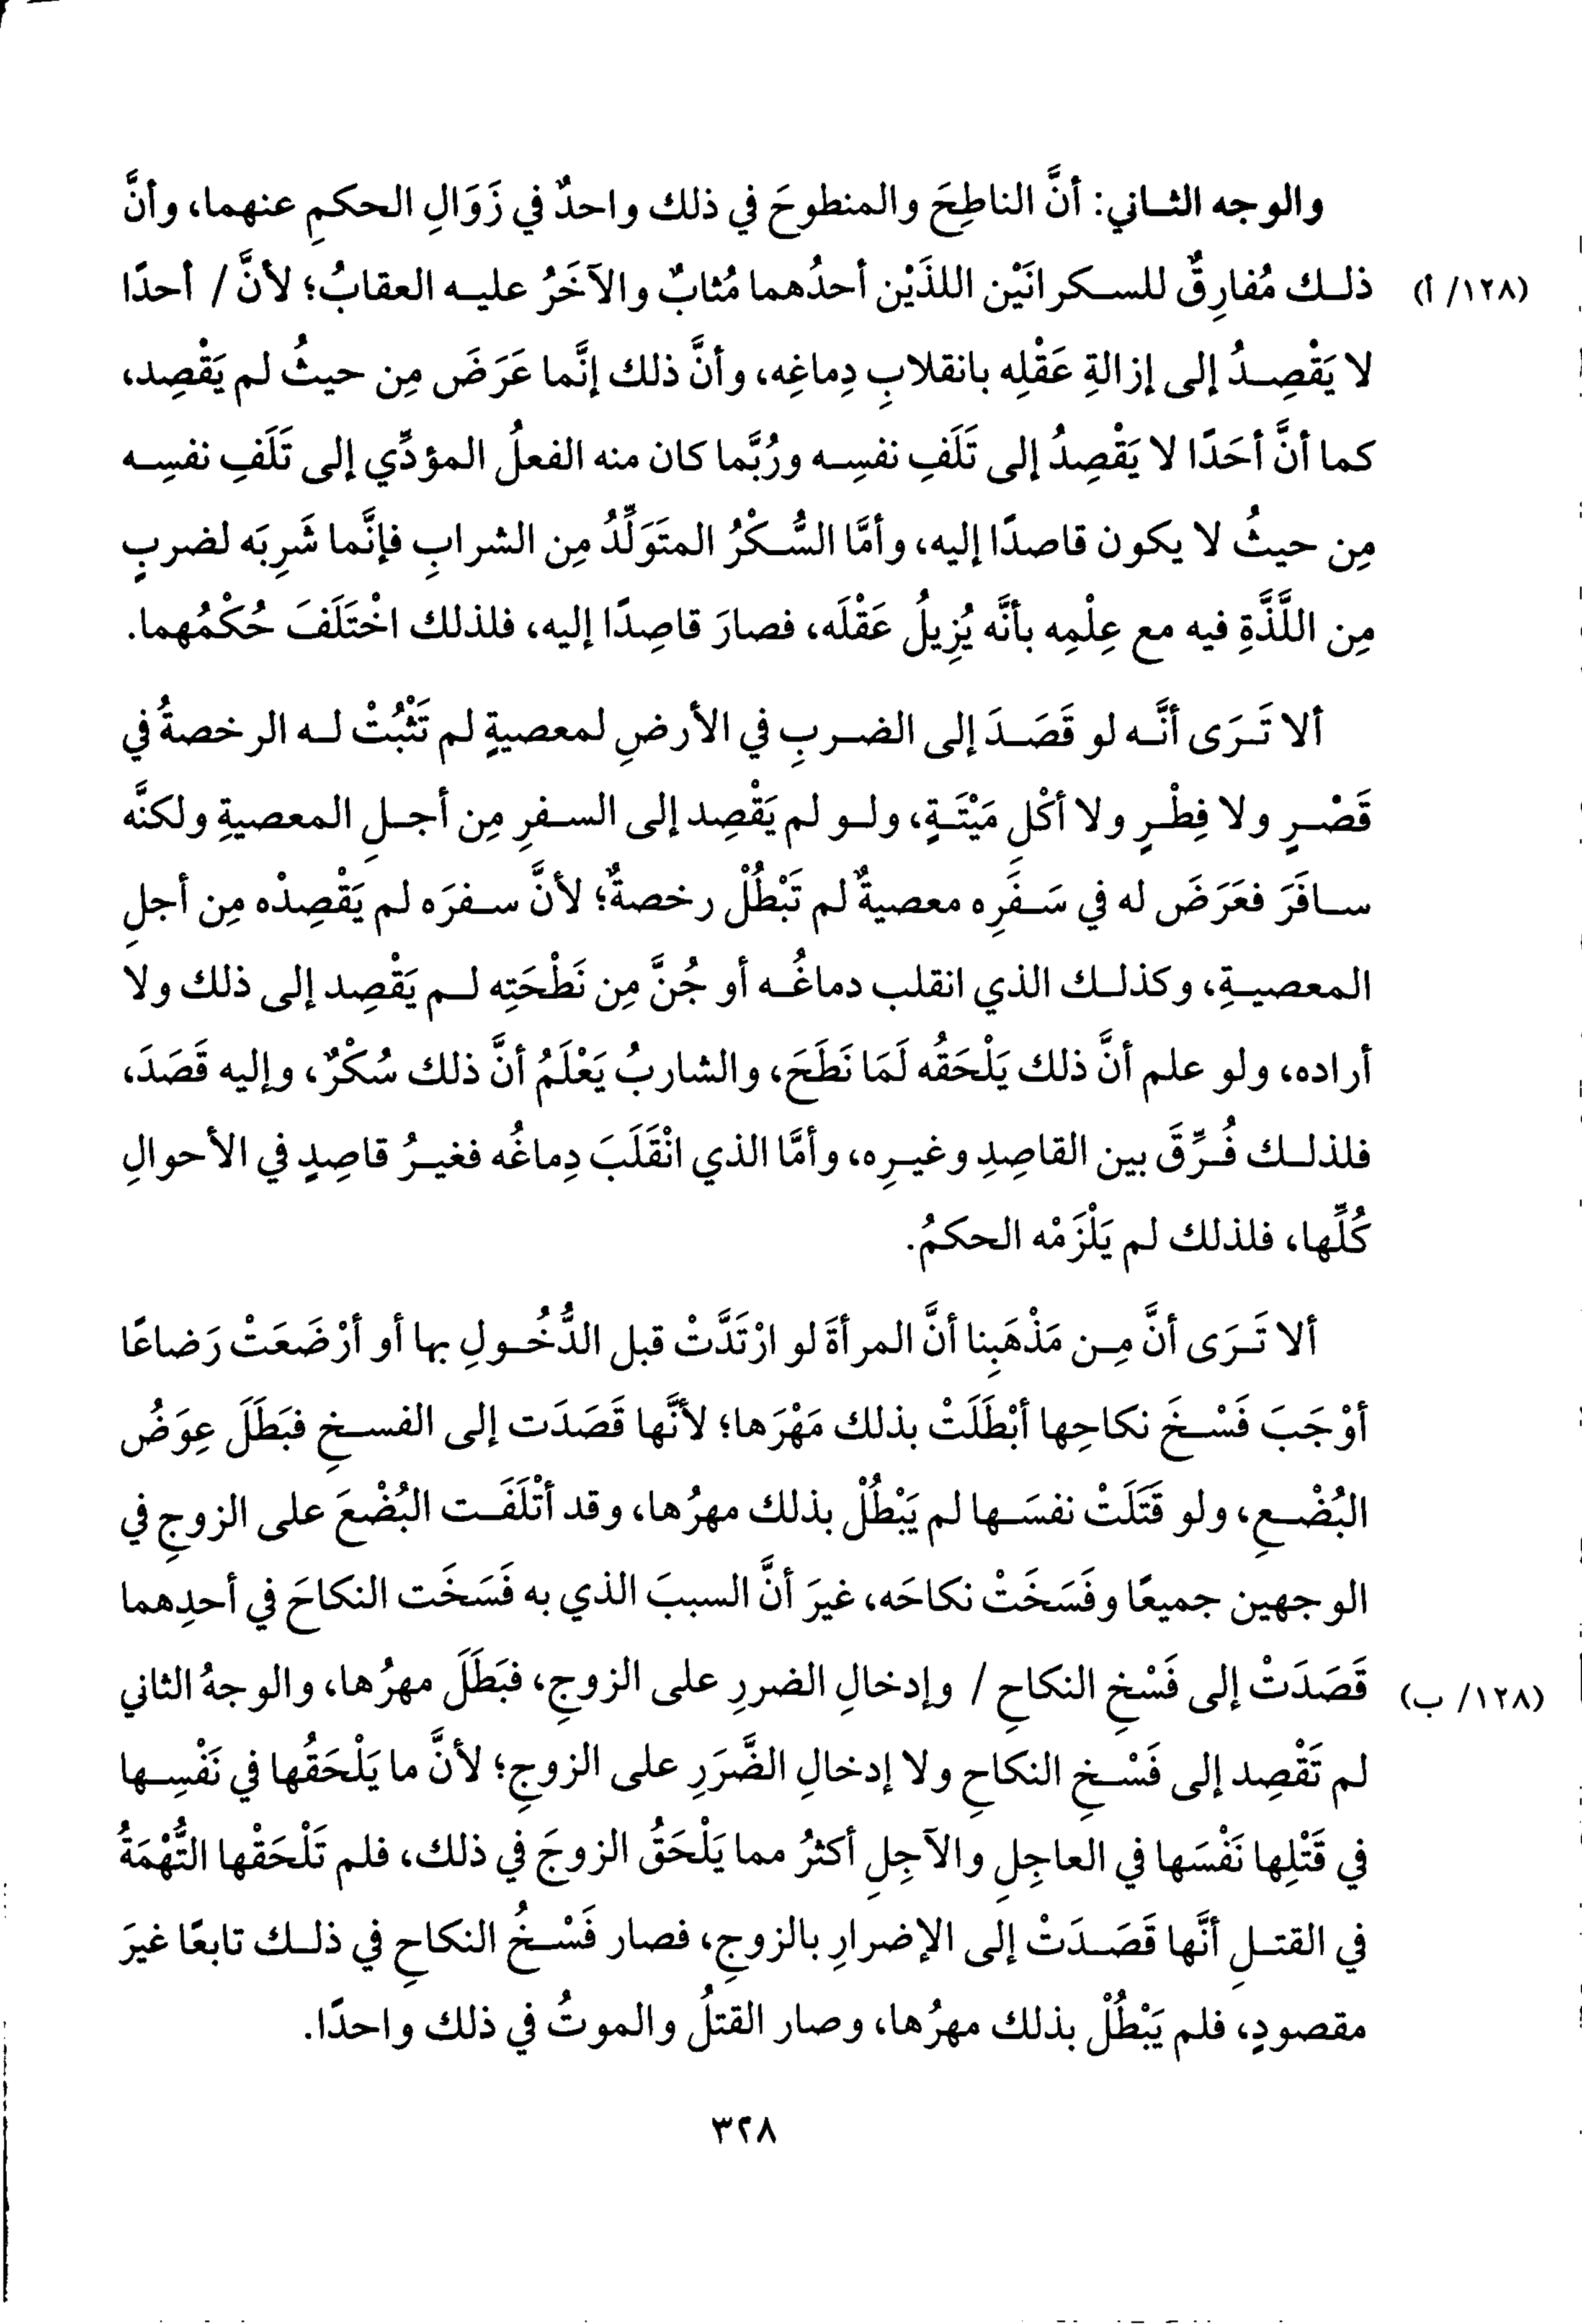 والوجه الثاني: أنَّ الناطِحَ والمنطوحَ في ذلك واحدٌ في زَوَالِ الحكمِ عنهما، وأنَّ
(١٢٨/ أ) ذلك مُفارِقٌ للسكرانَيْنِ اللذَيْن أحدُهما مُثابٌ والآخَرُ عليه العقابُ؛ لأنَّ / أحدًا
لا يَقْصِدُ إلى إزالةِ عَقْلِه بانقلابِ دِماغِه، وأنَّ ذلك إنَّما عَرَضَ مِن حيثُ لم يَقْصِد،
كما أنَّ أحَدًا لا يَقْصِدُ إلى تَلَفِ نفسِه ورُبَّما كان منه الفعلُ المؤدِّي إلى تَلَفِ نفسِه
مِن حيثُ لا يكون قاصدًا إليه، وأمَّا السُّكْرُ المتَوَلِّدُ مِن الشرابِ فإنَّما شَرِبَه لضربٍ
مِن اللَّذَّةِ فيه مع عِلْمِه بأنَّه يُزِيلُ عَقْلَه، فصارَ قاصِدًا إليه، فلذلك اخْتَلَفَ حُكْمُهما.
ألا تَرَى أنَّه لو قَصَدَ إلى الضربِ في الأرضِ لمعصيةٍ لم تَثْبُتْ له الرخصةُ في
قَصْرٍ ولا فِطْرٍ ولا أكْلِ مَيْتَةٍ، ولو لم يَقْصِد إلى السفرِ مِن أجلِ المعصيةِ ولكنَّه
سافَرَ فعَرَضَ له في سَفَرِه معصيةٌ لم تَبْطُلْ رخصةٌ؛ لأنَّ سفرَه لم يَقْصِدْه مِن أجلِ
المعصيةِ، وكذلك الذي انقلب دماغُه أو جُنَّ مِن نَطْحَتِه لم يَقْصِد إلى ذلك ولا
أراده، ولو علم أنَّ ذلك يَلْحَقُه لَمَا نَطَحَ، والشاربُ يَعْلَمُ أنَّ ذلك سُكْرٌ، وإليه قَصَدَ،
فلذلك فُرِّقَ بين القاصِدِ وغيرِه، وأمَّا الذي انْقَلَبَ دِماغُه فغيرُ قاصِدٍ في الأحوالِ
كُلِّها، فلذلك لم يَلْزَمْه الحكمُ.
ألا تَرَى أنَّ مِن مَذْهَبِنا أنَّ المرأةَ لو ارْتَدَّتْ قبل الدُّخُولِ بها أو أرْضَعَتْ رَضاعًا
أوْجَبَ فَسْخَ نكاحِها أبْطَلَتْ بذلك مَهْرَها؛ لأنَّها قَصَدَت إلى الفسخِ فبَطَلَ عِوَضُ
البُضْعِ، ولو قَتَلَتْ نفسَها لم يَبْطُلْ بذلك مهرُها، وقد أتْلَفَت البُضْعَ على الزوجِ في
الوجهين جميعًا وفَسَخَتْ نكاحَه، غيرَ أنَّ السببَ الذي به فَسَخَت النكاحَ في أحدِهما
(١٢٨/ ب) قَصَدَتْ إلى فَسْخِ النكاحِ / وإدخالِ الضررِ على الزوجِ، فبَطَلَ مهرُها، والوجهُ الثاني
لم تَقْصِد إلى فَسْخِ النكاحِ ولا إدخالِ الضَّرَرِ على الزوجِ؛ لأنَّ ما يَلْحَقُها في نَفْسِها
في قَتْلِها نَفْسَها في العاجِلِ والآجِلِ أكثرُ مما يَلْحَقُ الزوجَ في ذلك، فلم تَلْحَقْها التُّهْمَةُ
في القتلِ أنَّها قَصَدَتْ إلى الإضرارِ بالزوجِ، فصار فَسْخُ النكاحِ في ذلك تابعًا غيرَ
مقصودٍ، فلم يَبْطُلْ بذلك مهرُها، وصار القتلُ والموتُ في ذلك واحدًا.
٣٢٨